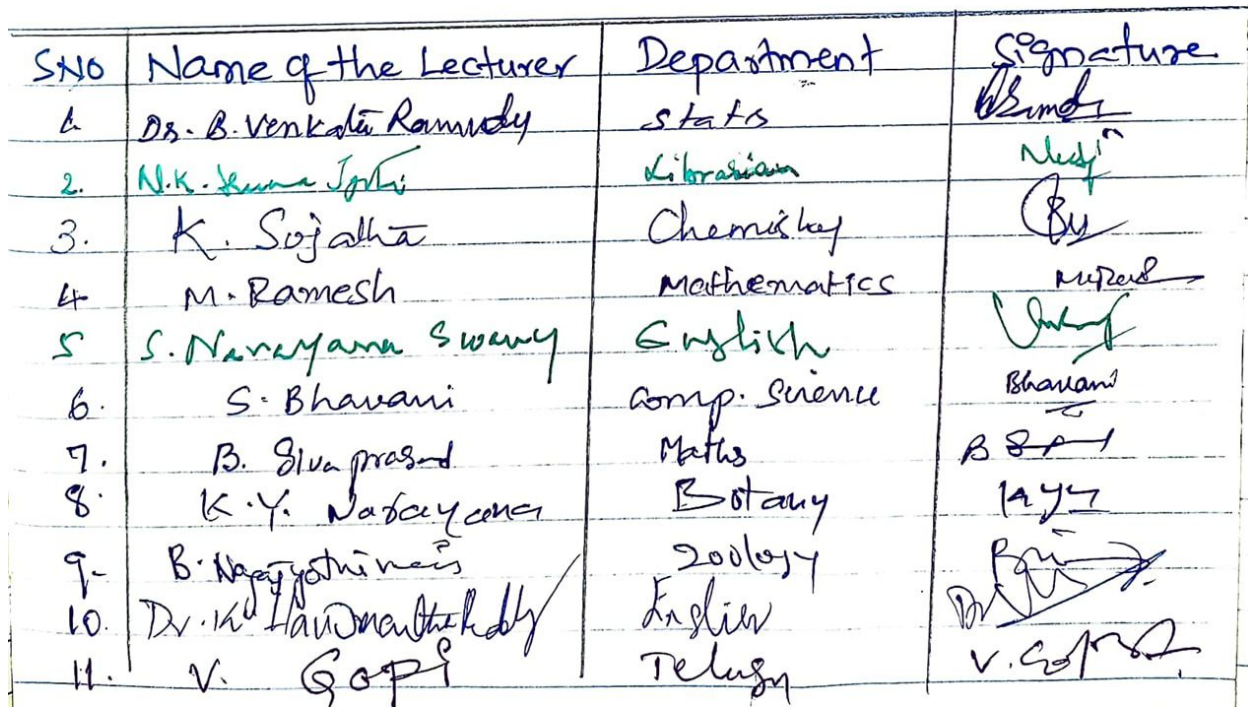 SNO Name of the Lecturer Department Signature
1. Dr. B. Venkata Ramudy stats
2. N.K. Jyothi Librarian
3. K. Sujatha Chemistry
4 M. Ramesh Mathematics
5 S. Narayana Swamy English
6. S. Bhavani Comp. Science Bhavani
7. B. Sivaprasad Maths
8. K.Y. Narayana Botany
9. B. Zoology
10. Dr. K Hanumantha Reddy English
11. V. Gopi Telugu V. Gopi